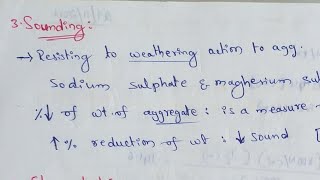 3. Sounding:
→ Resisting to weathering action to agg.
Sodium sulphate & magnesium sul
%↓ of wt. of aggregate : is a measure
↑% reduction of wt : ↓ Sound [